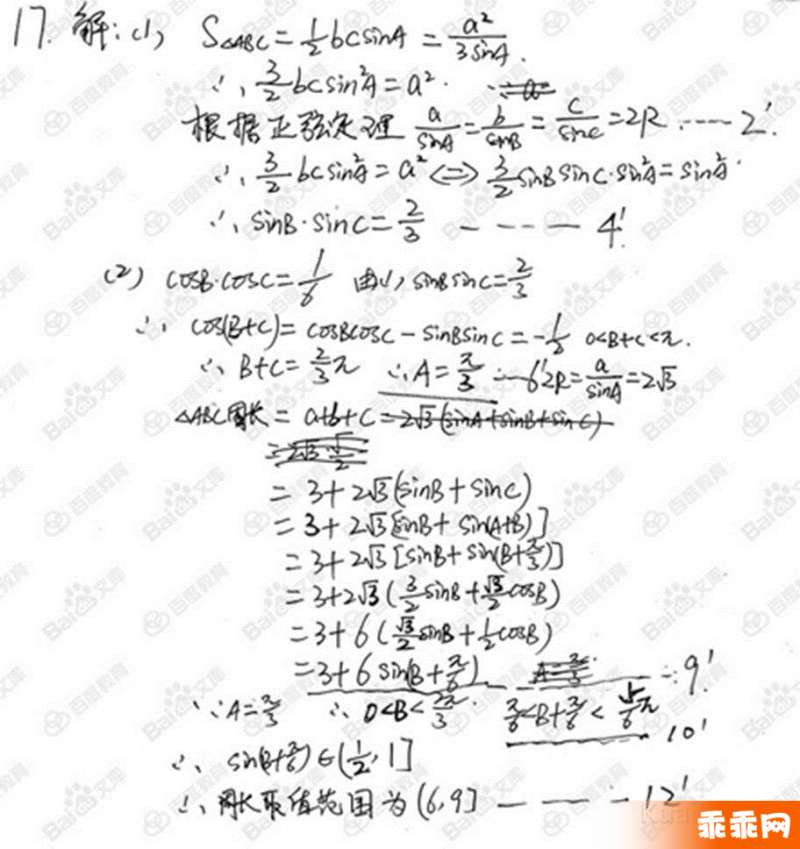 17. 解: (1) S△ABC = 1/2 bcsinA = a²/3sinA.
∴ 3/2 bcsin²A = a².
根据正弦定理 a/sinA = b/sinB = c/sinC = 2R ······ 2'
∴ 3/2 bcsin²A = a² <=> 3/2 sinBsinC·sin²A = sin²A.
∴ sinB·sinC = 2/3 ------ 4'
(2) cosB·cosC = 1/6 由(1), sinBsinC = 2/3
∴ cos(B+C) = cosBcosC - sinBsinC = -1/2 0<B+C<π.
∴ B+C = 2/3π ∴ A = π/3 ···6' 2R = a/sinA = 2√3
△ABC周长 = a+b+c = 2√3(sinA+sinB+sinC)
= 3+2√3(sinB+sinC)
= 3+2√3[sinB+sin(A+B)]
= 3+2√3[sinB+sin(B+π/3)]
= 3+2√3(3/2 sinB+√3/2 cosB)
= 3+6(√3/2 sinB+1/2 cosB)
= 3+6sin(B+π/6) ···9'
∵ A = π/3 ∴ 0<B<2π/3 π/6<B+π/6<5/6π
10'
∴ sin(B+π/6)∈(1/2, 1]
∴ 周长取值范围为(6,9] ------ 12'
Baidu文库
百度教育
乖乖网